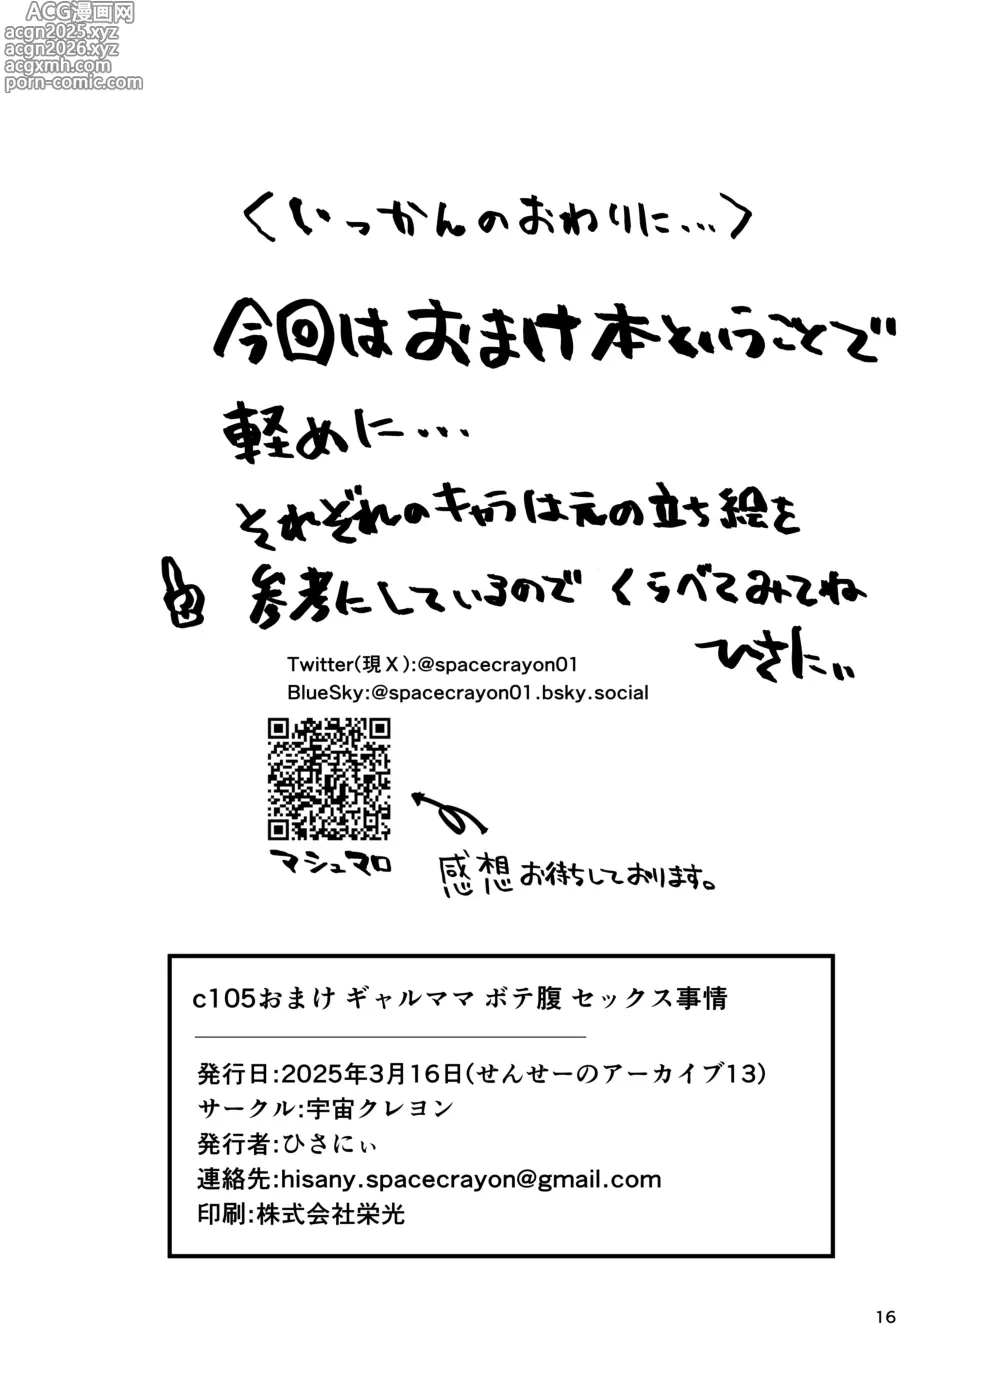 ACG漫画网
acgn2025.xyz
acgn2026.xyz
acgxmh.com
porn-comic.com
〈いっかんのおわりに…〉
今回はおまけ本ということで
軽めに…
それぞれのキャラは元の立ち絵を
参考にしているので くらべてみてね
ひさにぃ
Twitter(現X):@spacecrayon01
BlueSky:@spacecrayon01.bsky.social
マシュマロ
感想お待ちしております。
c105おまけ ギャルママ ボテ腹 セックス事情
発行日:2025年3月16日(せんせーのアーカイブ13)
サークル:宇宙クレヨン
発行者:ひさにぃ
連絡先:hisany.spacecrayon@gmail.com
印刷:株式会社栄光
16